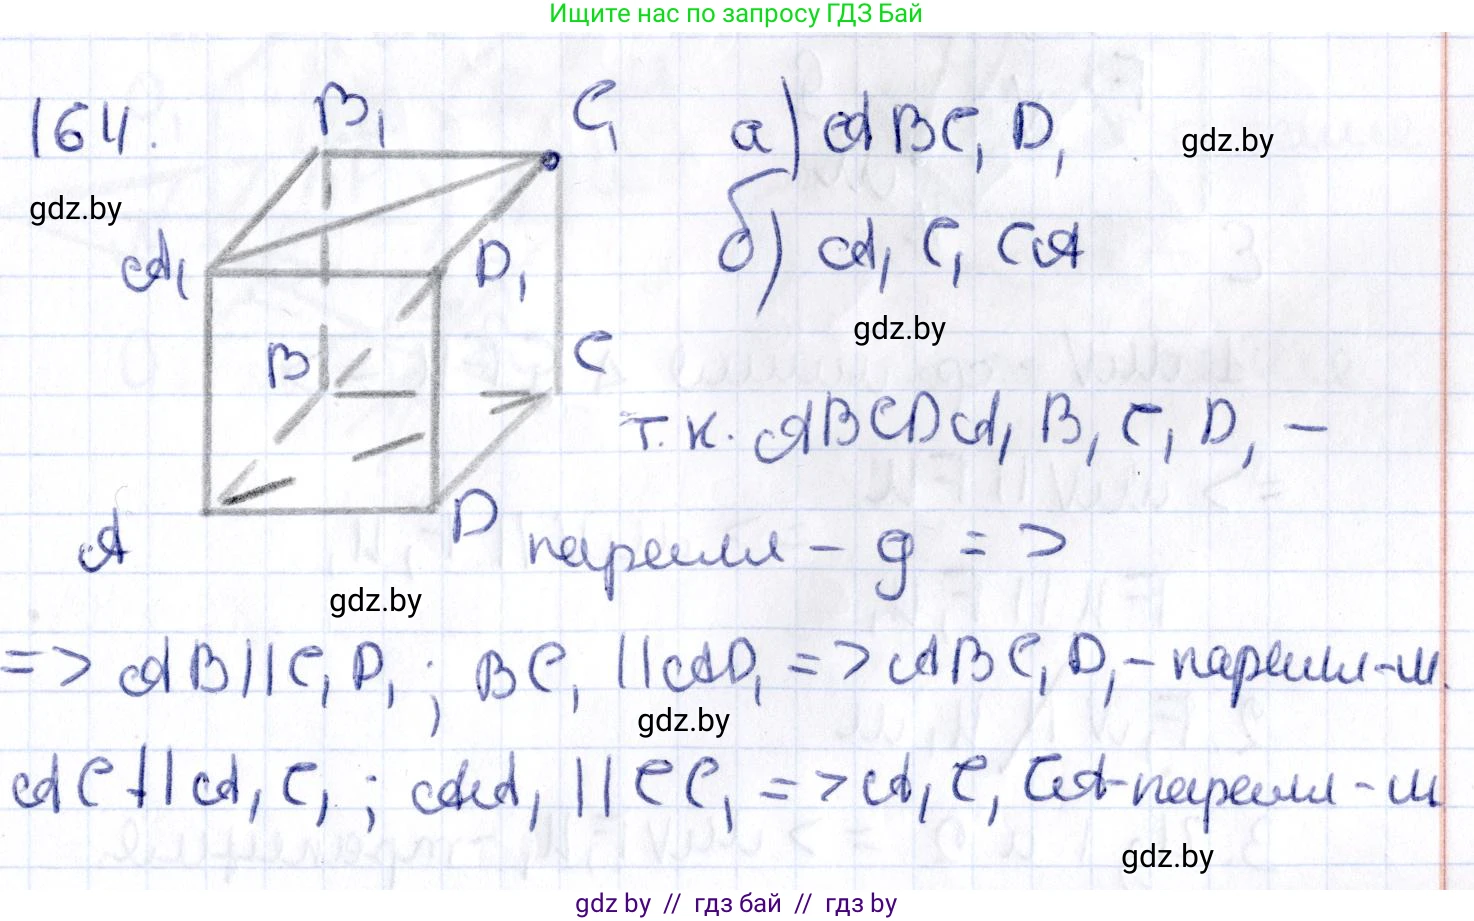 Ищите нас по запросу ГДЗ Бай
164.
B₁
C₁
а) ABC₁D₁
gdz.by
gdz.by
б) A₁C₁CA
A₁
D₁
gdz.by
B
C
т.к. ABCDA₁B₁C₁D₁ –
A
D
паралл – д =>
gdz.by
=> AB||C₁D₁; BC₁ ||AD₁ => ABC₁D₁ – паралл-м.
gdz.by
AC||A₁C₁; AA₁ ||CC₁ => A₁C₁CA-паралл-м
gdz.by
gdz by // гдз бай // гдз by